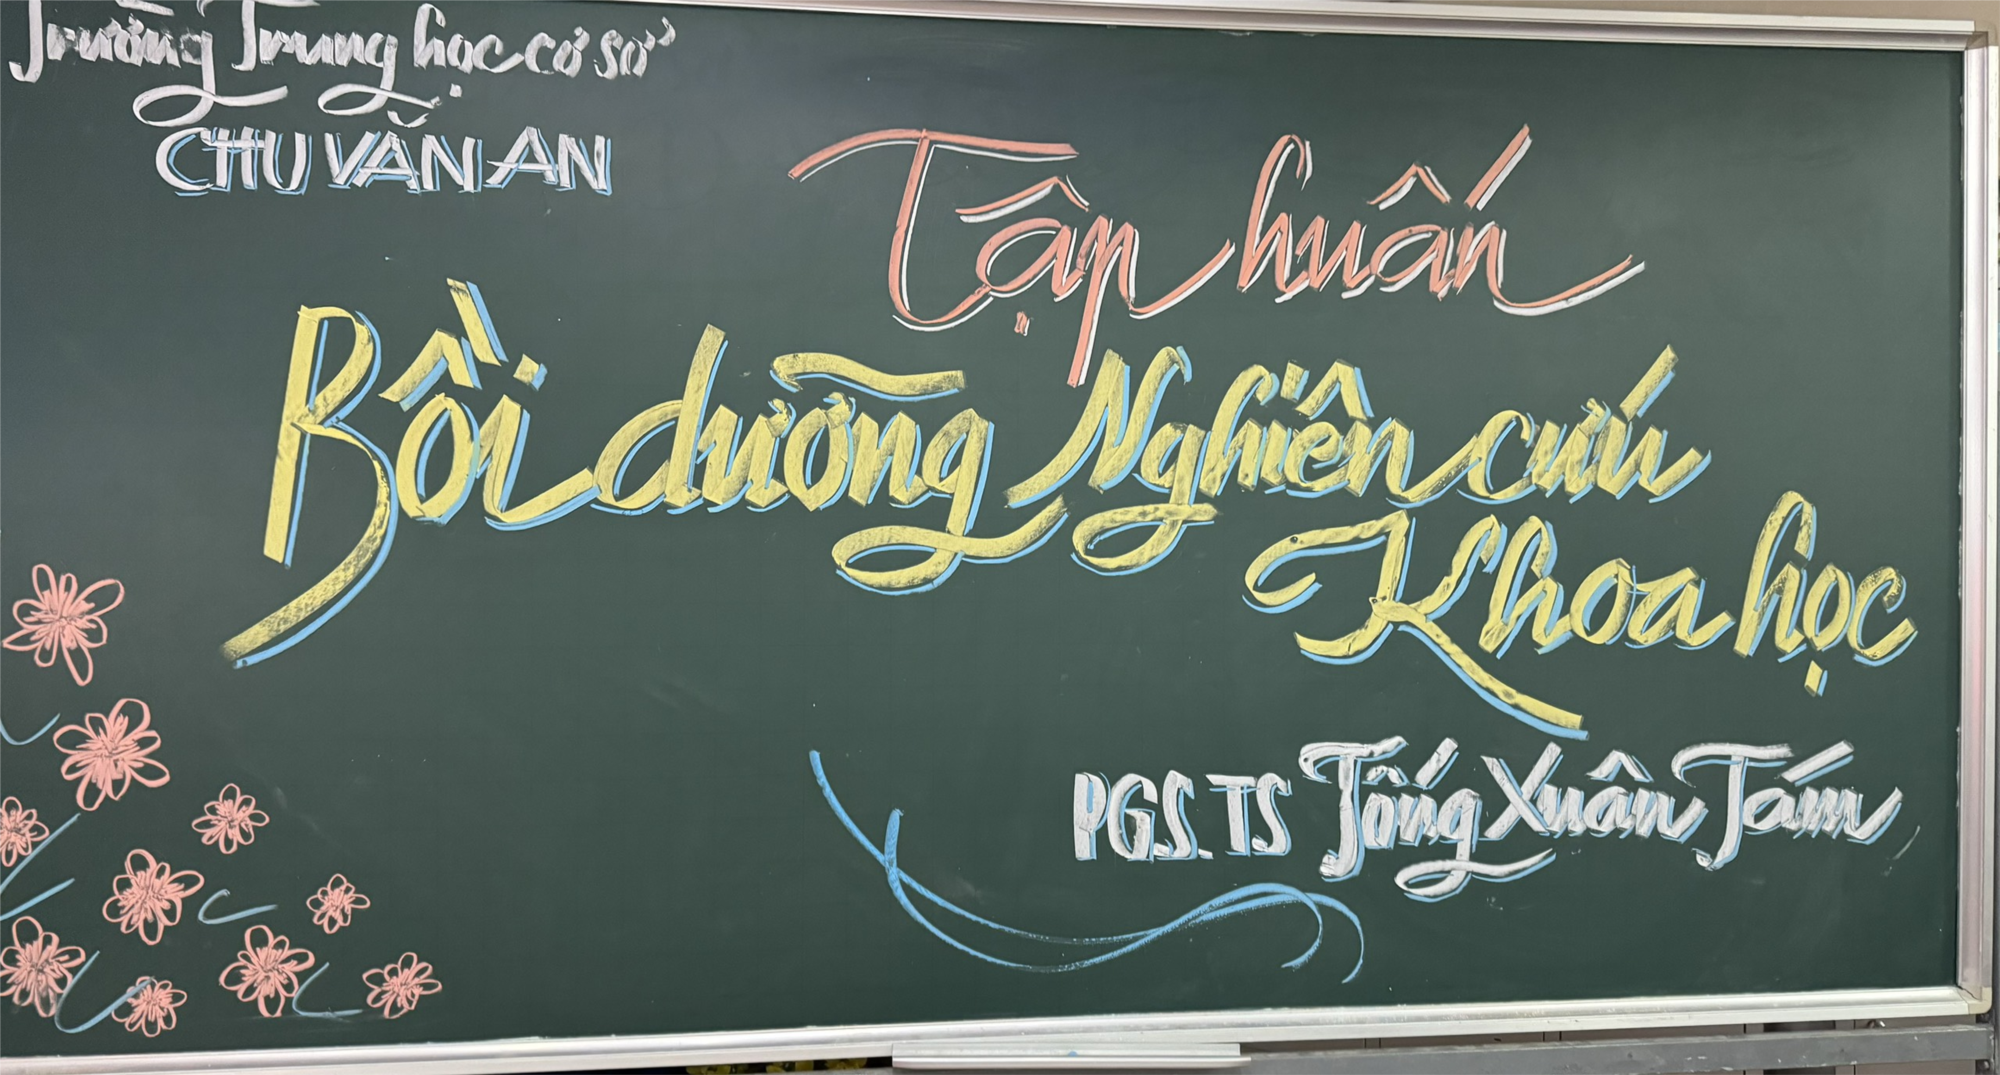 Trường Trung học cơ sở
CHU VĂN AN
Tập huấn
Bồi dưỡng Nghiên cứu
Khoa học
PGS.TS Tống Xuân Tám